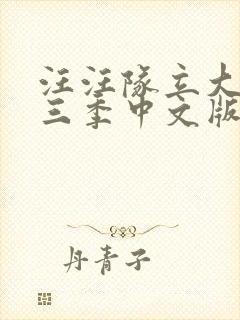 汪汪队立大
三季中文版
丹青子